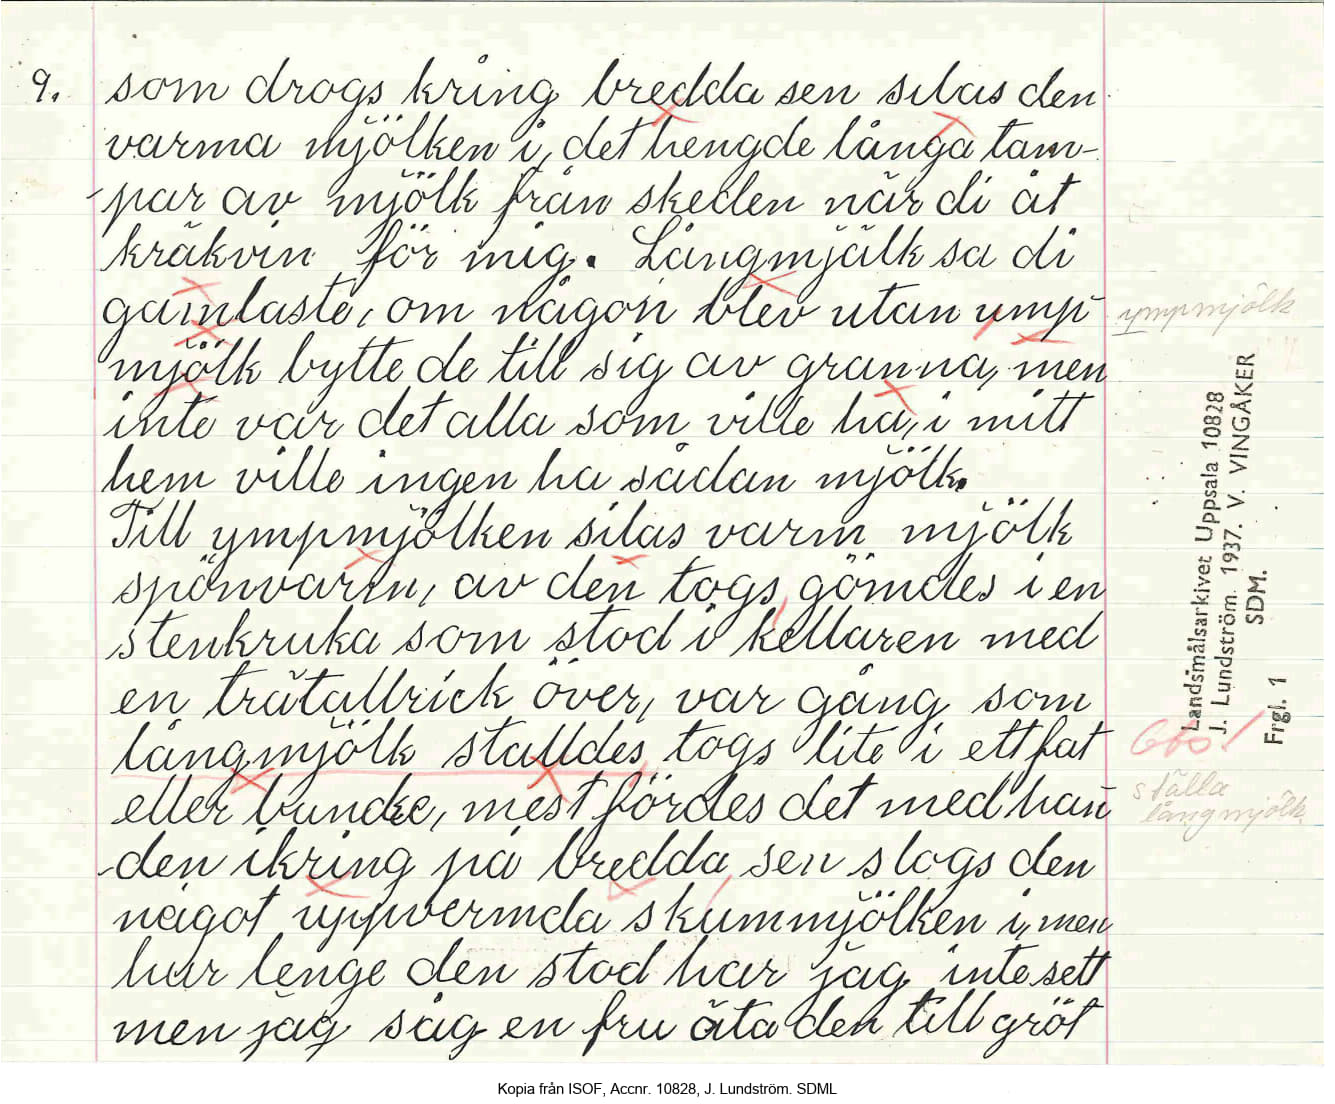 9. som drogs kring bredda sen silas den
varma mjölken i, det hengde långa tam-
par av mjölk från skeden når di åt
kräkvin för mig. Långmjälk sa di
gamlaste, om någon blev utan ymp
mjölk bytte de till sig av granna, men
inte var det alla som ville ha, i mitt
hem ville ingen ha sådan mjölk.
Till ympmjölken silas varm mjölk
spönvarm, av den togs gömdes i en
stenkruka som stod i kellaren med
en trätallrick över, var gång som
långmjölk stalldes togs lite i ett fat
eller bunke, mest fördes det med han
den ikring på bredda, sen slogs den
något uppvermda skummjölken i, men
hur lenge den stod har jag inte sett
men jag såg en fru äta den till gröt
ympmjölk
Landsmålsarkivet Uppsala 10828
J. Lundström. 1937. V. VINGÅKER
SDM.
Frgl. 1
Obs!
ställa
långmjölk
Kopia från ISOF, Accnr. 10828, J. Lundström. SDML